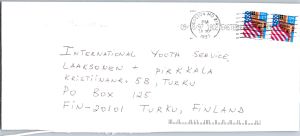 PM
1997
INTERNATIONAL YOUTH SERVICE,
LAAKSONEN + PIRKKALA
KRISTIINANK, 58, TURKU
PO BOX 125
FIN-20101 TURKU, FINLAND